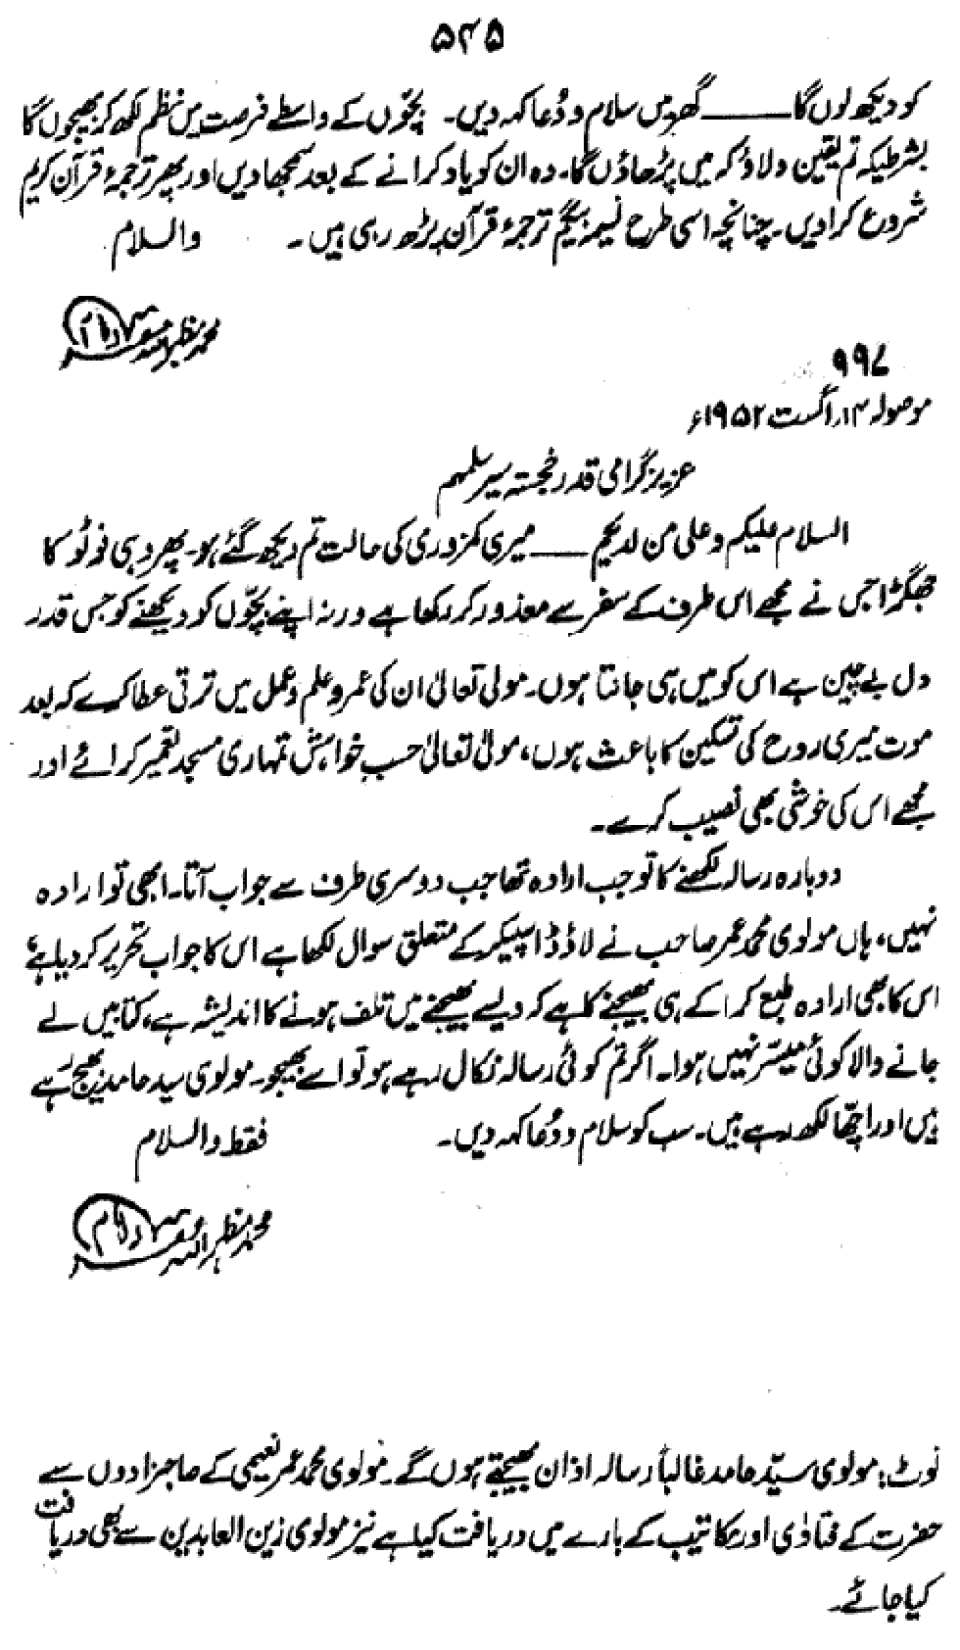 ۵۴۵
کو دیکھ لوں گا ــــــــ گھر میں سلام و دُعا کہہ دیں۔ بچّوں کے واسطے فرصت میں نظم لکھ کر بھیجوں گا
بشرطیکہ تم یقین دلاؤ کہ میں پڑھاؤں گا۔ وہ ان کو یاد کرانے کے بعد سمجھا دیں اور پھر ترجمۂ قرآن کریم
شروع کرا دیں۔ چنانچہ اسی طرح نسیمہ بیگم ترجمۂ قرآن پڑھ رہی ہیں۔ والسلام
محمد مظہر اللہ
۹۹۷
موصولہ ۱۴؍ اگست ۱۹۵۲ء
عزیز گرامی قدر خجستہ سیر سلمہم
السلام علیکم وعلی من لدیکم ــــــ میری کمزوری کی حالت تم دیکھ گئے ہو۔ پھر وہی فوٹو کا
جھگڑا جس نے مجھے اس طرف کے سفر سے معذور کر رکھا ہے ورنہ اپنے بچّوں کو دیکھنے کو جس قدر
دل بے چین ہے اس کو میں ہی جانتا ہوں۔ مولی تعالیٰ ان کی عمر و علم و عمل میں ترقی عطا کرے کہ بعد
موت میری روح کی تسکین کا باعث ہوں، مولیٰ تعالیٰ حسب خواہش تمہاری مسجد تعمیر کرائے اور
مجھے اس کی خوشی بھی نصیب کرے۔
دوبارہ رسالہ لکھنے کا تو جب ارادہ تھا جب دوسری طرف سے جواب آتا۔ ابھی تو ارادہ
نہیں، ہاں مولوی محمد عمر صاحب نے لاؤڈ اسپیکر کے متعلق سوال لکھا ہے اس کا جواب تحریر کر دیا ہے،
اس کا بھی ارادہ طبع کرا کے ہی بھیجنے کا ہے کہ ویسے بھیجنے میں تلف ہونے کا اندیشہ ہے، کتابیں لے
جانے والا کوئی میسّر نہیں ہوا۔ اگر تم کوئی رسالہ نکال رہے ہو تو اسے بھیجو۔ مولوی سید حامد یہ بھیج رہے
ہیں اور اچّھا لکھ رہے ہیں۔ سب کو سلام و دُعا کہہ دیں۔ فقط والسلام
محمد مظہر اللہ
نوٹ: مولوی سیّد حامد غالباً رسالہ اذان بھیجتے ہوں گے۔ مولوی محمد عمر نعیمی کے صاحبزادوں سے
حضرت کے فتاوٰی اور مکاتیب کے بارے میں دریافت کیا ہے نیز مولوی زین العابدین سے بھی دریافت
کیا جائے۔